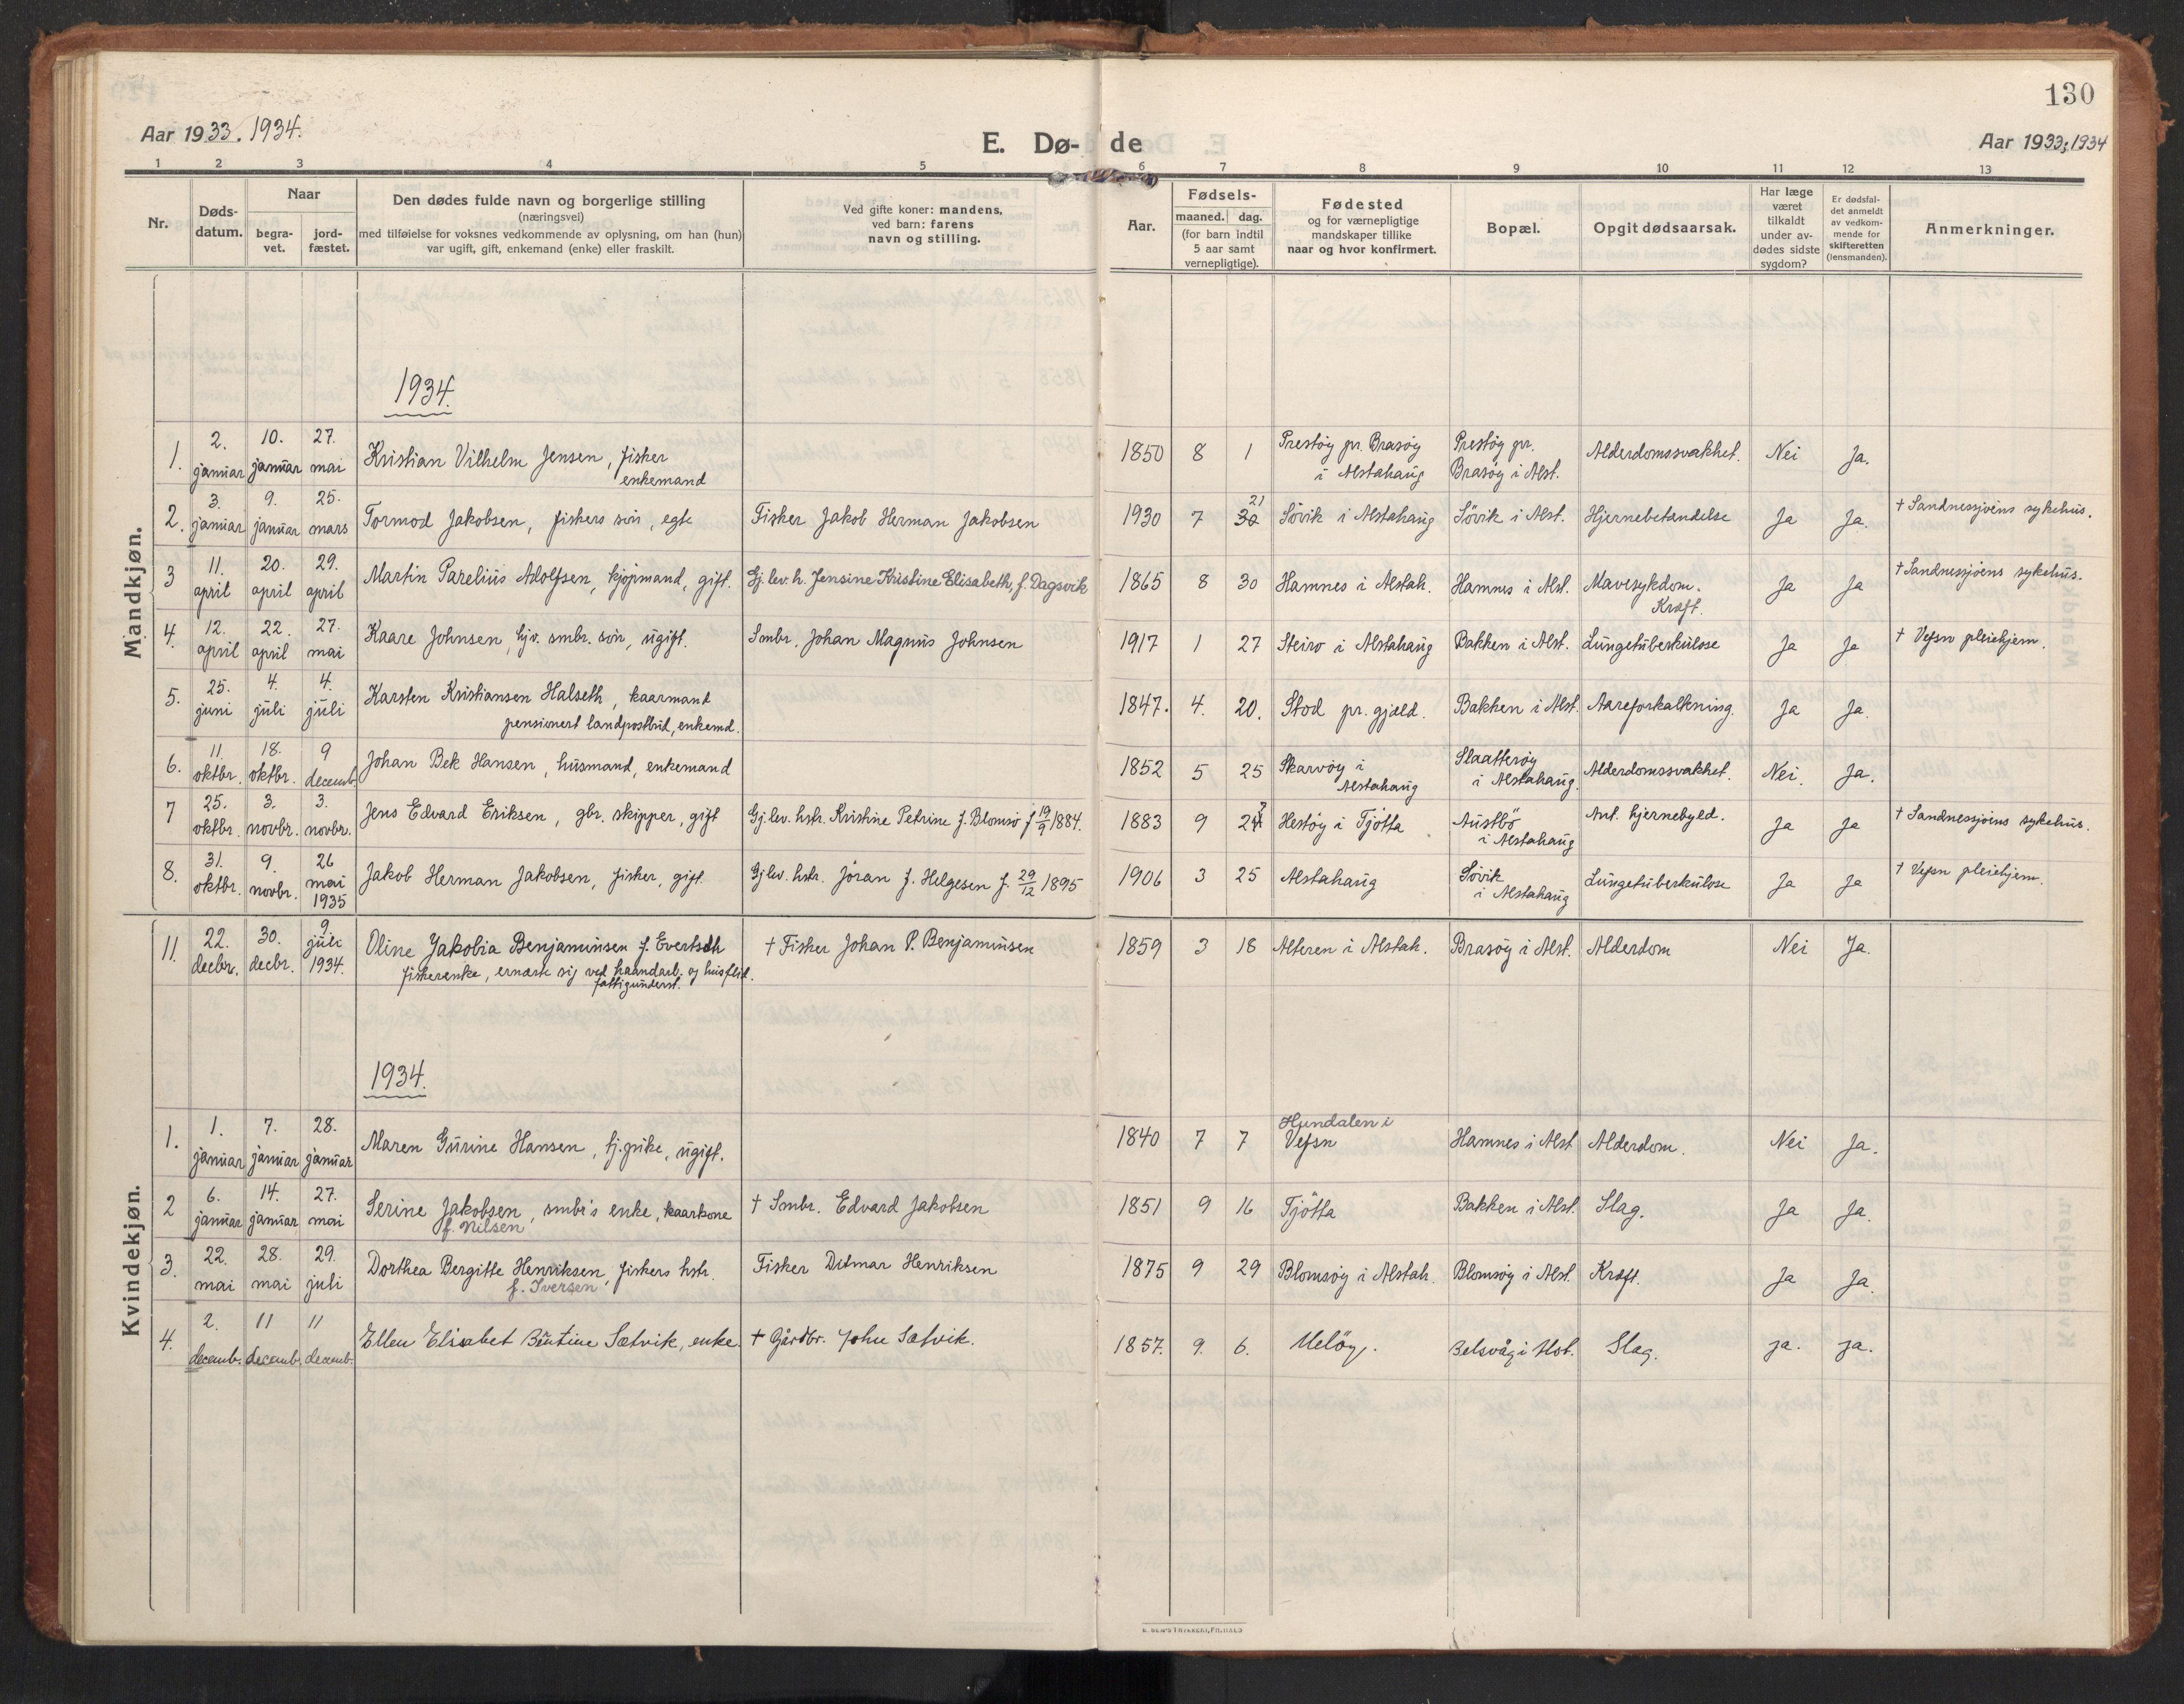 130
Aar 1933. 1934.
E. Dø- de
Aar 1933, 1934
1 2 3 4 5 6 7 8 9 10 11 12 13
Nr.
Døds-
datum.
Naar
begra-
vet.
jord-
fæstet.
Den dødes fulde navn og borgerlige stilling
(næringsvei)
med tilføielse for voksnes vedkommende av oplysning, om han (hun)
var ugift, gift, enkemand (enke) eller fraskilt.
Ved gifte koner: mandens,
ved barn: farens
navn og stilling.
Aar.
Fødsels-
maaned. dag.
(for barn indtil
5 aar samt
vernepligtige).
Fødested
og for værnepligtige
mandskaper tillike
naar og hvor konfirmert.
Bopæl.
Opgit dødsaarsak.
Har læge
været
tilkaldt
under av-
dødes sidste
sygdom?
Er dødsfal-
det anmeldt
av vedkom-
mende for
skifteretten
(lensmanden).
Anmerkninger.
Mandkjøn.
1934.
1. 2. januar 10. januar 27. mai Kristian Vilhelm Jensen, fisker
enkemand
1850 8 1 Prestøy pr. Brasøy
i Alstahaug
Prestøy pr.
Brasøy i Alst.
Alderdomssvakhet. Nei Ja.
2. 3. januar 9. januar 25. mars Tormod Jakobsen, fiskers sön, egte Fisker Jakob Herman Jakobsen 1930 7 30 21 Sövik i Alstahaug Sövik i Alst. Hjernebetandelse Ja Ja. † Sandnessjöens sykehus.
3 11. april 20. april 29. april Martin Parelius Adolfsen, kjöpmand, gift. Gj. lev. h. Jensine Kristine Elisabeth, f. Dagsvik 1865 8 30 Hamnes i Alstah. Hamnes i Alst. Mavesykdom.
Kræft.
Ja Ja † Sandnessjöens sykehus.
4. 12. april 22. april 27. mai Kaare Johnsen, hjv. smbr. sön, ugift. Smbr. Johan Magnus Johnsen 1917 1 27 Steiro i Alstahaug Bakken i Alst. Lungetuberkulose Ja Ja † Vefsn pleiehjem.
5. 25. juni 4. juli 4. juli Karsten Kristiansen Halseth, kaarmand
pensionert landpostbud, enkemd.
1847. 4. 20. Stod pr. gjæld. Bakken i Alst. Aareforkalkning. Ja Ja.
6. 11. oktbr. 18. oktbr. 9 decemb. Johan Bek Hansen, husmand, enkemand 1852 5 25 Skarvøy i
Alstahaug
Slaatterøy
i Alstahaug.
Alderdomssvakhet. Nei. Ja.
7 25. oktbr. 3. novbr. 3. novbr. Jens Edvard Eriksen, gbr. skipper, gift Gj. lev. hstr. Kristine Petrine f. Blomsö f 19/9 1884. 1883 9 24 Hestøy i Tjötta Austbö
i Alstahaug
Ant. hjernebyld. Ja Ja † Sandnessjöens sykehus.
8. 31. oktbr. 9. novbr. 26 mai 1935 Jakob Herman Jakobsen, fisker, gift. Gj. lev. hstr. Jöran f. Helgesen f. 29/12 1895 1906 3 25 Alstahaug Sövik
i Alstahaug
Lungetuberkulose Ja Ja † Vefsn pleiehjem.
Kvindekjøn.
11. 22. decbr. 30. decbr. 9. juli 1934. Oline Jakobia Benjaminsen f. Evertsdtr
fiskerenke, ernærte sig ved haandarb. og husflid.
fattigunderst.
† Fisker Johan P. Benjaminsen 1859 3 18 Alteren i Alstah. Brasøy i Alst. Alderdom Nei Ja.
1934.
1. 1. januar 7. januar 28. januar Maren Gurine Hansen, tj. pike, ugift. 1840 7 7 Hundalen i
Vefsn
Hamnes i Alst Alderdom. Nei Ja.
2 6. januar 14. januar 27. mai Serine Jakobsen, smbr's enke, kaarkone
f. Nilsen
† Smbr. Edvard Jakobsen 1851 9 16 Tjötta Bakken i Alst. Slag. Ja Ja.
3. 22. mai 28. mai 29. juli Dorthea Bergitte Henriksen, fiskers hstr.
f. Iversen
Fisker Ditmar Henriksen 1875 9 29 Blomsøy i Alstah. Blomsøy i Alst. Kræft. Ja Ja.
4. 2. decemb. 11 decemb. 11 decemb. Ellen Elisabet Sætvik, enke. † Gårdbr. John Sætvik. 1857. 9. 6. Meløy. Belsvåg i Alst. Slag. Ja. Ja.